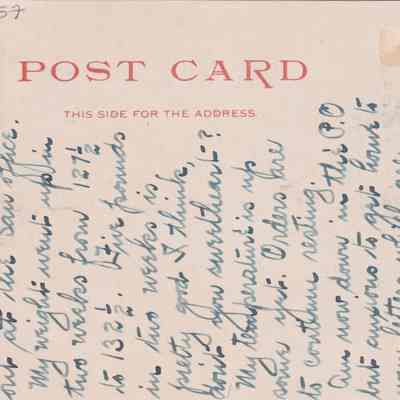 57
POST CARD
THIS SIDE FOR THE ADDRESS
out at the San office.
My weight went up in
two weeks from 127½
to 132½. Five pounds
in two weeks is
pretty good I think,
don't you sweetheart?
My temperature is up
some yet. Orders are
to continue resting.
Am now down in the P.O
but anxious to get home to
your letter